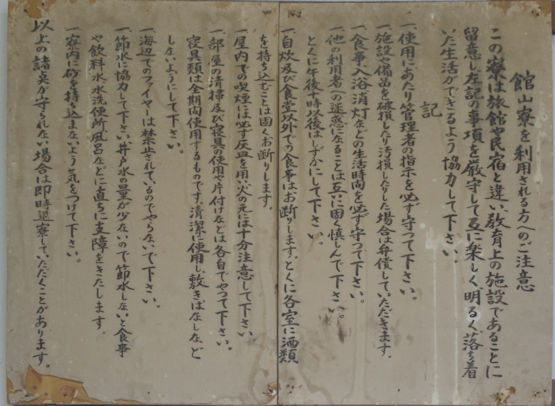 館山寮を利用される方へのご注意
この寮は旅館や民宿と違い教育上の施設であることに
留意し左記の事項を厳守して互に楽しく明るく落ち着
いた生活ができるよう協力して下さい。
記
一、使用にあたり管理者の指示を必ず守って下さい。
一、施設や備品を破損したり汚損したりした場合は弁償していただきます。
一、食事、入浴、消灯などの生活時間を必ず守って下さい。
一、他の利用者への迷惑になることは互に固く慎んで下さい。
とくに午後十時以後はしずかにして下さい。
一、自炊及び食堂以外での食事はお断りします。とくに各室に酒類
を持ち込むことは固くお断りします。
一、屋内での喫煙には必ず灰皿を用い火の元には十分注意して下さい。
一、部屋の清掃及び寝具の使用後片付けなどは各自でやって下さい。
寝具類は全期間使用するものです。清潔に使用し敷きぱなしなど
しないようにして下さい。
一、海辺でのファイヤーは禁止されているのでやらないで下さい。
一、節水に協力して下さい。井戸水の量が少ないので節水しないと食事
や飲料水、水洗便所、風呂などに直ちに支障をきたします。
一、寮内に砂を持ち込まないよう気をつけて下さい。
以上の諸点が守られない場合は即時退寮していただくことがあります。